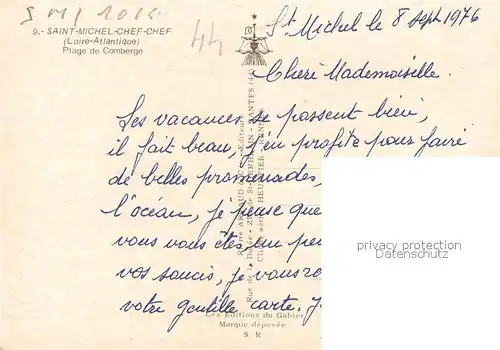 S M J 2016
44
9.- SAINT-MICHEL-CHEF-CHEF
(Loire-Atlantique)
Plage de Comberge
St Michel le 8 sept 1976
Cheré Mademoiselle.
Les vacances se passent bien,
il fait beau, j'en profite pour faire
de belles promenades,
l'océan, je pense que
vous vous êtes un peu
vos soucis, je vous re
votre gentille carte. J
ARTAUD
Rue de la
- NANTES
Les Editions du Gabier
Marque déposée
S R
privacy protection
Datenschutz